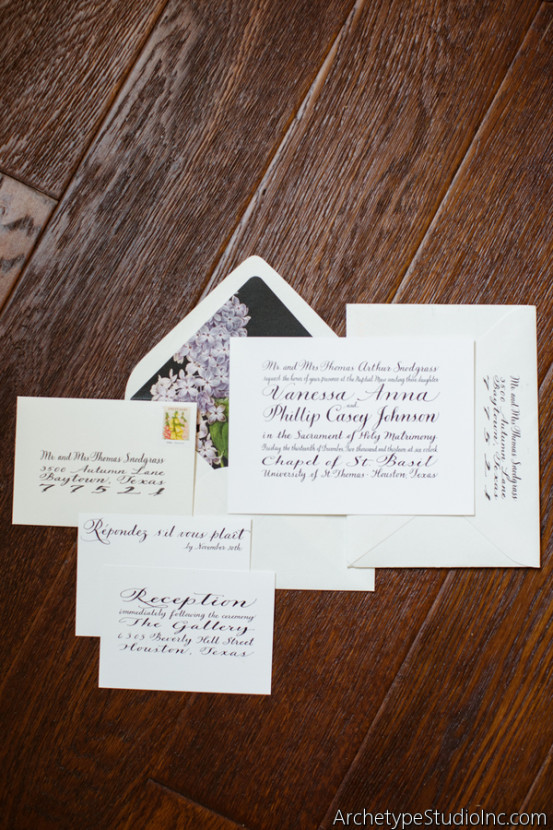 Mr and Mrs Thomas Arthur Snodgrass
request the honor of your presence at the Nuptial Mass uniting their daughter
Vanessa Anna
and
Phillip Casey Johnson
in the Sacrament of Holy Matrimony
Saturday, the thirteenth of December, Two thousand and thirteen at six o'clock
Chapel of St Basil
University of St Thomas Houston, Texas
Mr and Mrs Thomas Snodgrass
3800 Autumn Lane
Baytown, Texas
77521
Mr and Mrs Thomas Snodgrass
3800 Autumn Lane
Baytown, Texas
77521
Répondez s'il vous plait
by November 20th
Reception
immediately following the ceremony
The Gallery
6303 Beverly Hill Street
Houston, Texas
ArchetypeStudioInc.com